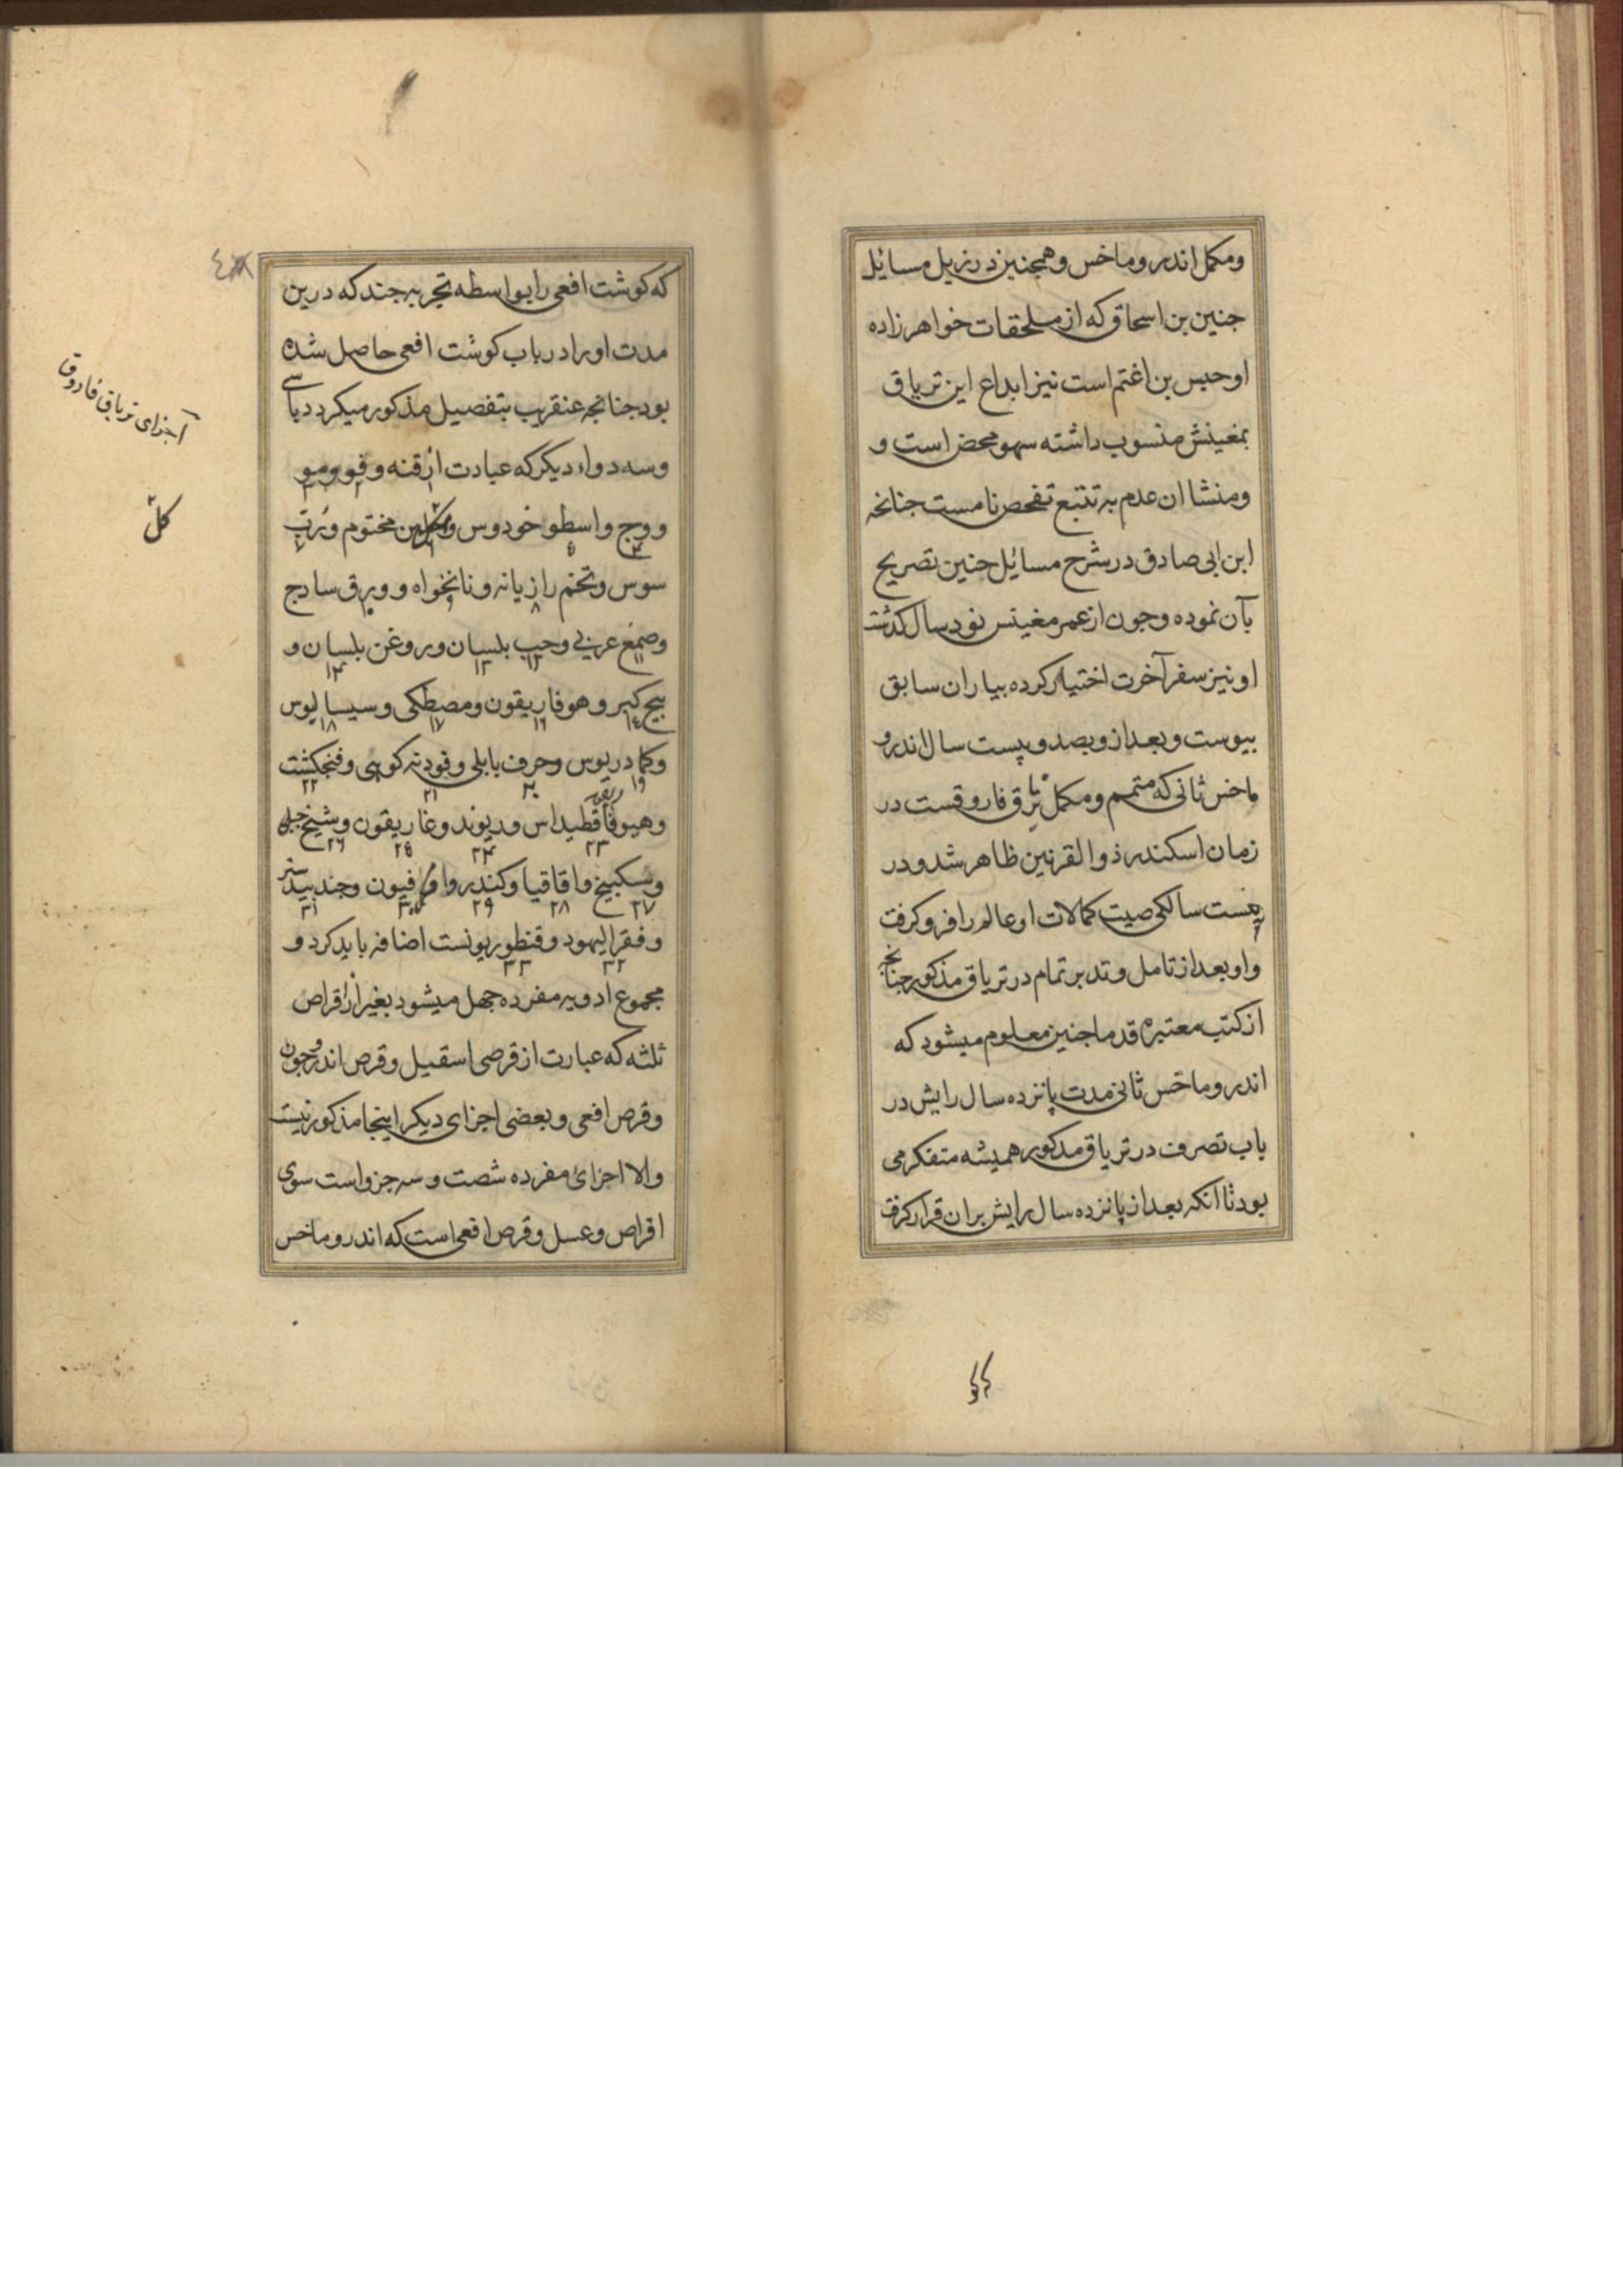 ومکمل اندروماخس وهمجنین در زیل مسایل
جنین بن اسحاق که از ملحقات خواهرزاده
او حبیس بن اغتم است نیز ابداع این تریاق
بمغینش منسوب داشته سهو محض است و
ومنشا ان عدم به تتبع تفحص نامست جنانجه
ابن ابی صادق در شرح مسائل حنین تصریح
بآن نموده وجون از عمر مغینس نود سال کذشت
او نیز سفر آخرت اختیار کرده بیاران سابق
بیوست وبعد از وبصد وپیست سال اندرو
ماخس ثانی که متمم ومکمل تریاق فاروقست در
زمان اسکندر ذوالقرنین ظاهر شد ودر
پیست سالکی صیت کمالات او عالم را فرو کرفت
واو بعد از تامل وتدبر تمام در تریاق مذکور جنانجه
از کتب معتبره قدما جنین معلوم میشود که
اندروماخس ثانی مدت پانزده سال رایش در
باب تصرف در تریاق مذکور همیشه متفکر می
بود تا انکه بعد از پانزده سال رایش بران قرار کرفت
که کوشت افعی را بواسطه تجربه جند که درین
مدت او را در باب کوشت افعی حاصل شده
بود جنانجه عنقریب بتفصیل مذکور میکردد باسی
وسه دواء دیکر که عبارت از قنه وفو ومو
ووج واسطوخودوس وکل مختوم ورب
سوس وتخم رازیانه ونانخواه وورق سادج
وصمغ عربی وحب بلسان وروغن بلسان و
بیج کبر وهوفاریقون ومصطکی وسیسالیوس
وکمادریوس وحرف بابلی وفودنه کوهی وفنجکشت
وهیوفاقطیداس وریوند وغاریقون وشیح جبلی
وسکبینج واقاقیا وکندر وافیون وجندبیدستر
وفقر الیهود وقنطوریونست اضافه باید کرد و
مجموع ادویه مفرده جهل میشود بغیر از اقراص
ثلثه که عبارت از قرصی اسقیل وقرص اندروجون
وقرص افعی وبعضی اجزای دیکر اینجا مذکور نیست
والا اجزائ مفرده شصت وسه جزو است سوی
اقراص وعسل وقرص افعی است که اندروماخس
اجزای تریاق فاروق
کل